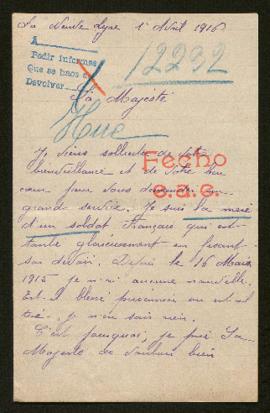 La Neuve Lyre 1 Avril 1916
A
Pedir informes
Que se haga
Devolver
12232
Sa Majesté
Fecho
c.a.c.
Je viens solliciter de votre
bienveillance et de votre bon
cœur pour vous demander un
grand service. Je suis la mère
d'un soldat français qui est
tombé glorieusement en faisant
son devoir. Depuis le 16 Mars
1915 je n'ai aucune nouvelle.
Est-il blessé prisonnier ou est-il
tué. je n'en sais rien.
C'est pourquoi, je prie Sa
Majesté de vouloir bien